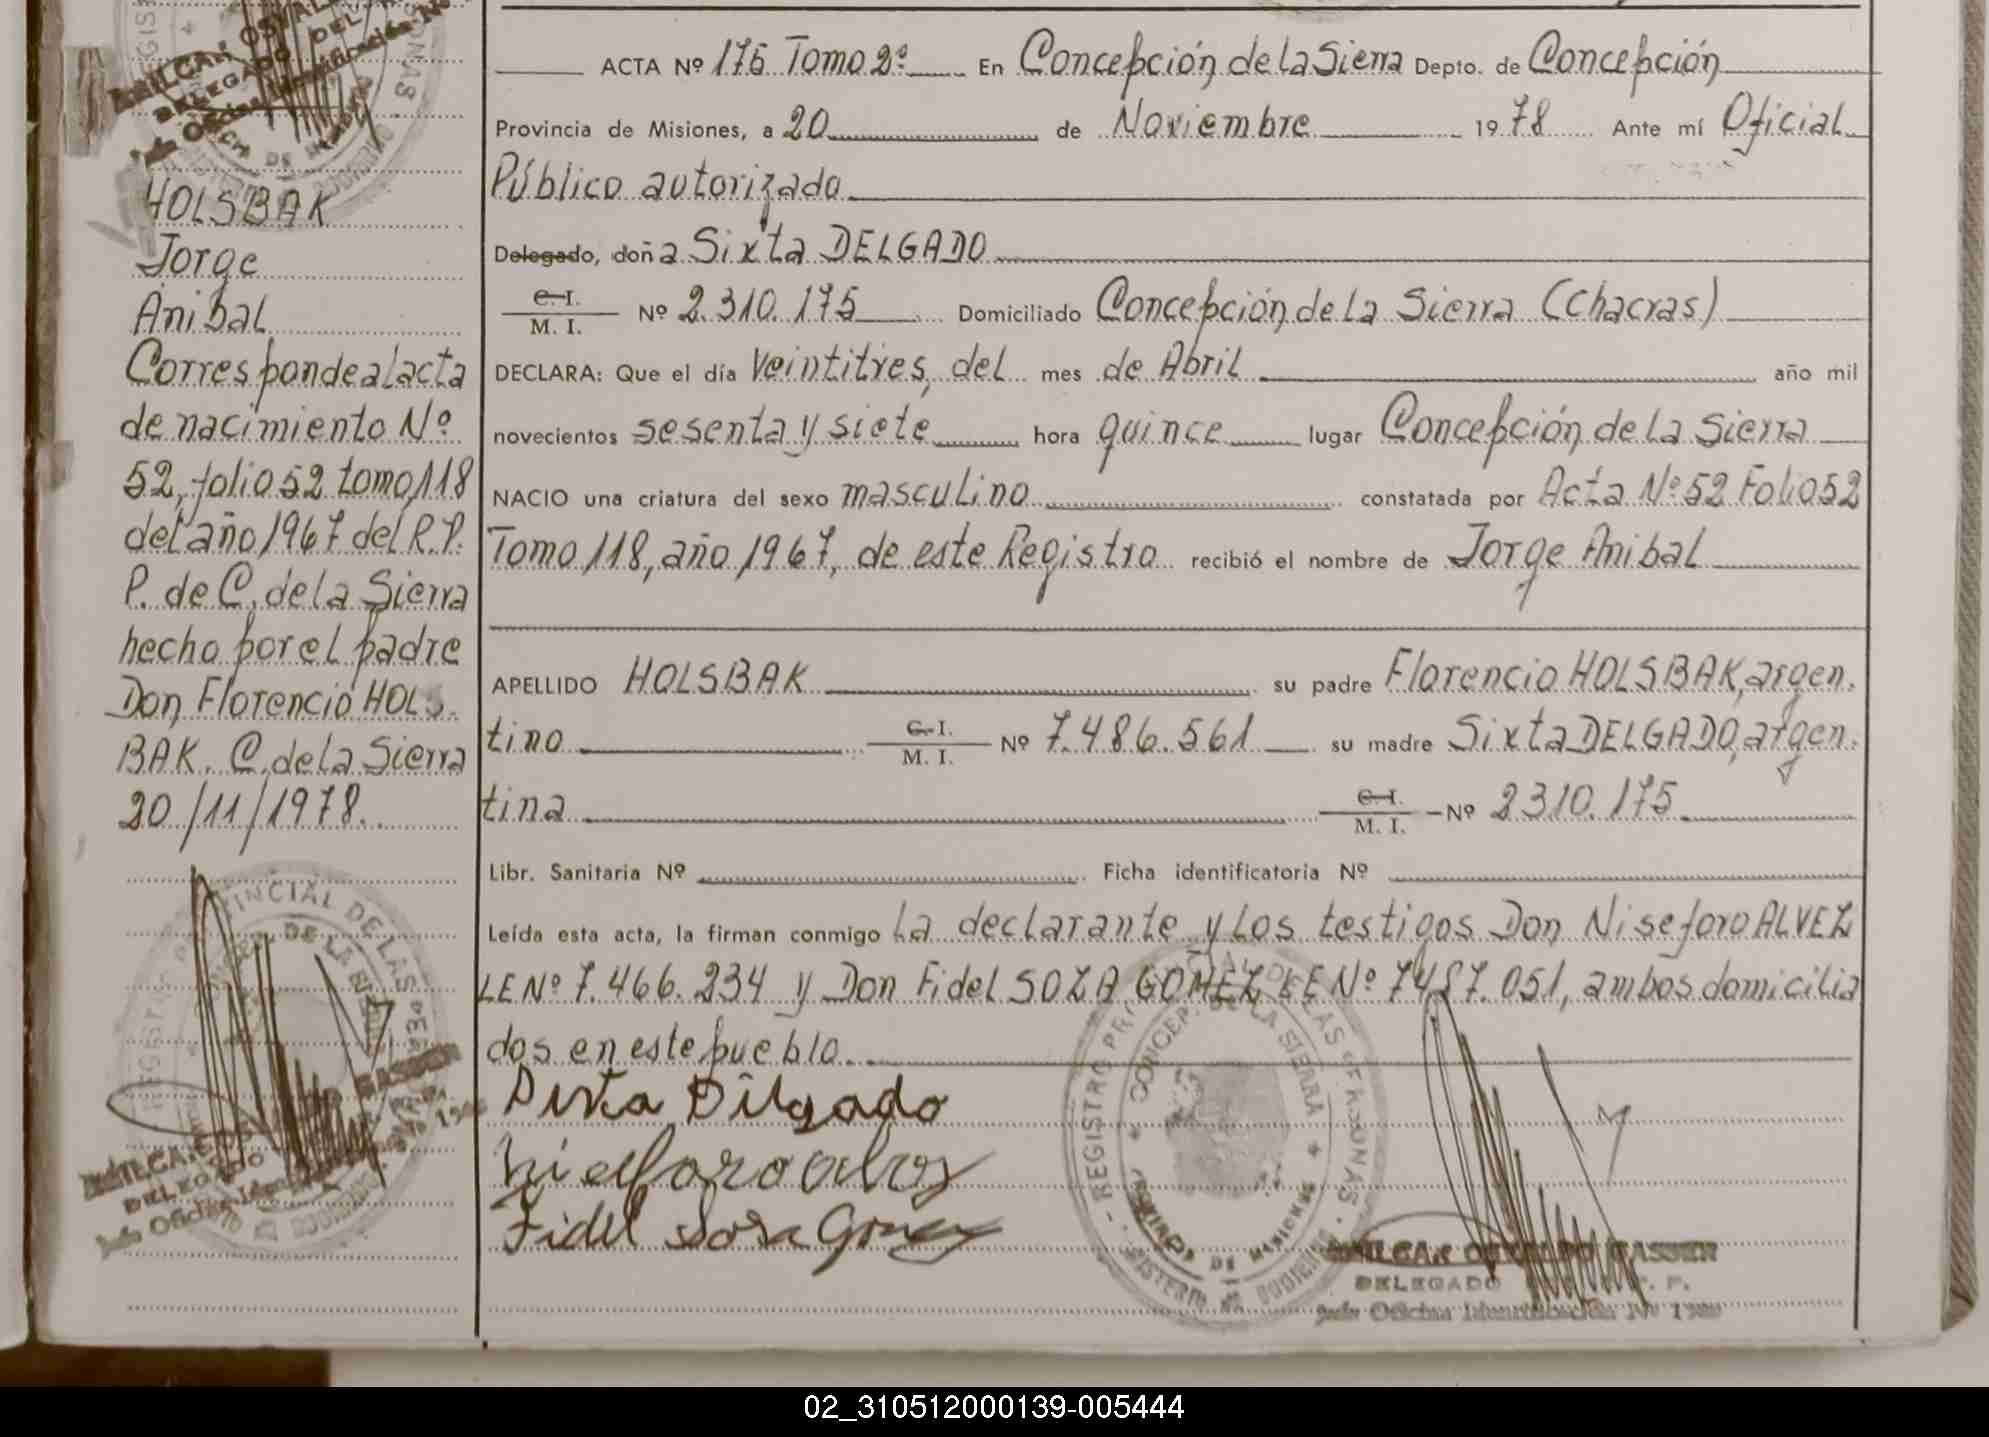 HOLSBAK
Jorge
Anibal
Corresponde al acta
de nacimiento Nº
52, folio 52 tomo 118
del año 1967 del R.P.
P. de C. de la Sierra
hecho por el padre
Don Florencio HOLS
BAK. C. de la Sierra
20/11/1978.
ACTA Nº 175 Tomo 2º En Concepción de la Sierra Depto. de Concepción
Provincia de Misiones, a 20 de Noviembre 1978 Ante mí Oficial
Público autorizado
Delegado, doña Sixta DELGADO
C. I.
M. I. Nº 2.310.175 Domiciliado Concepción de la Sierra (Chacras)
DECLARA: Que el día Veintitres, del mes de Abril año mil
novecientos sesenta y siete hora quince lugar Concepción de la Sierra
NACIO una criatura del sexo masculino constatada por Acta Nº 52 Folio 52
Tomo 118, año 1967, de este Registro recibió el nombre de Jorge Anibal
APELLIDO HOLSBAK su padre Florencio HOLSBAK, argen.
tino C. I. M. I. Nº 7.486.561 su madre Sixta DELGADO, argen.
tina C. I. M. I. Nº 2310.175
Libr. Sanitaria Nº Ficha identificatoria Nº
Leída esta acta, la firman conmigo la declarante y los testigos Don Niseforo ALVEZ
LE Nº 7.466.234 y Don Fidel SOZA GOMEZ LE Nº 7487.051, ambos domicilia
dos en este pueblo.
Fidel Sosa Gomez
REGISTRO PROVINCIAL DE LAS PERSONAS
CONCEP. DE LA SIERRA
PROVINCIA DE MISIONES
MINISTERIO DE GOBIERNO
DELEGADO
Jefe Oficina Identificación Nº
02_310512000139-005444